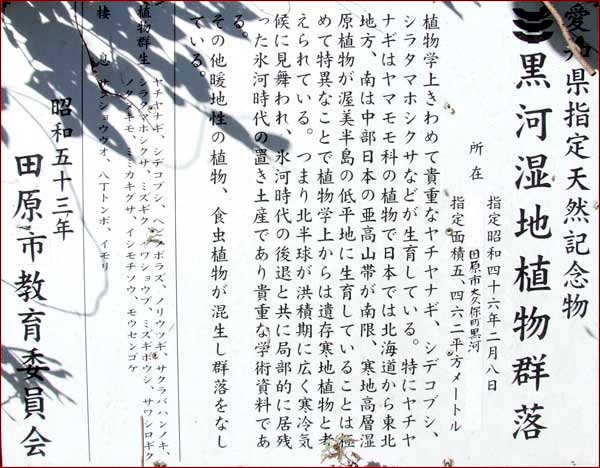 愛知県指定天然記念物
黒河湿地植物群落
指定昭和四十六年二月八日
所在
田原市大久保町黒河
指定面積五、四六二平方メートル
植物学上きわめて貴重なヤチヤナギ、シデコブシ、
シラタマホシクサなどが生育している。特にヤチヤ
ナギはヤマモモ科の植物で日本では北海道から東北
地方、南は中部日本の亜高山帯が南限、寒地高層湿
原植物が渥美半島の低平地に生育していることは極
めて特異なことで植物学上からは遺存寒地植物と考
えられている。つまり北半球が洪積期に広く寒冷気
候に見舞われ、氷河時代の後退と共に局部的に居残
った氷河時代の置き土産であり貴重な学術資料であ
る。
その他暖地性の植物、食虫植物が混生し群落をなし
ている。
植物群生
ヤチヤナギ、シデコブシ、ヘビノボラズ、ノリウツギ、サクラバハンノキ、
シラタマホシクサ、ミズギク、イワショウブ、ミズギボウシ、サワシロギク
ノタヌキモ、ミミカキグサ、イシモチソウ、モウセンゴケ
棲息
サンショウウオ、八丁トンボ、イモリ
昭和五十三年
田原市教育委員会